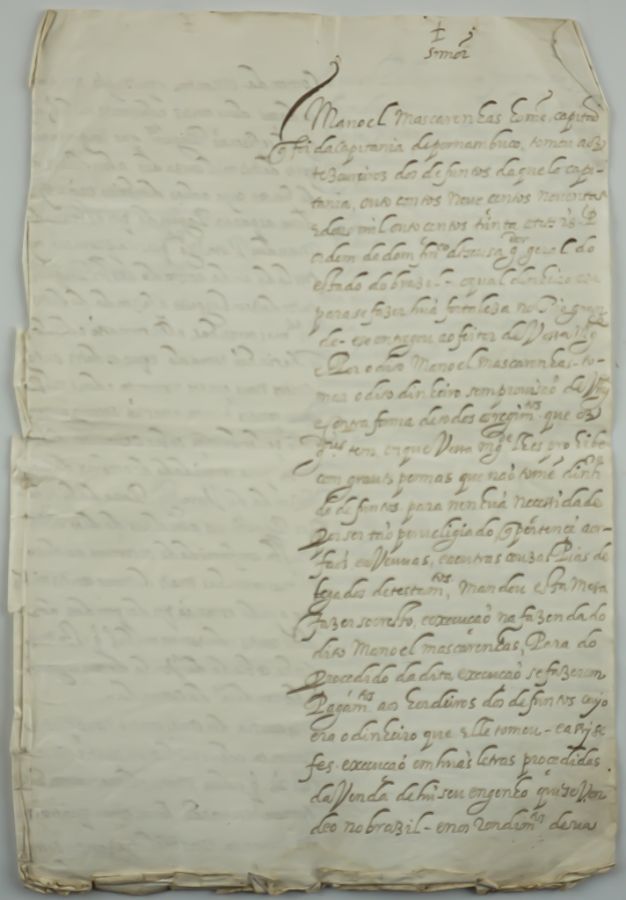 +
Snõr
Manoel mascarenhas home, capitaõ
q foi da capitania de pernambuco, tomou aos
tezoureiros dos defuntos daquela capi-
tania, outo centos nove centos noventa
e dous mil outo centos trinta e rs.
ordem de dom frco de sousa gor geral do
estado do brazil - o qual dinheiro
para se fazer huã fortaleza no Rio gran
de - e se entregou ao feitor de Vossa Mgde
e Por o dito Manoel mascarenhas to-
mar o dito dinheiro sem provisaõ de Vmg
e contra forma de todos os regimtos que os
tem, en que Vossa mgde lhes prohibe
com graves pennas que naõ tomẽ dinhro
de defuntos. para nenhuã necessidade
Por ser taõ previligiado, q pertence a or-
faõs e Veuvas, e outras couzas Pias de
legados de testamtos, mandou esta Mesa
fazer socresto, e execuçaõ na fazenda do
dito Manoel mascarenhas, Para do
Procedido da dita execuçaõ se fazerem
Pagamtos aos herdeiros dos defuntos cujo
era o dinheiro que elle tomou - e assj se
fes execuçaõ em huãs letras procedidas
da Venda de hũ seu engenho q se Ven
deo no brazil - e nos rendimtos de sua